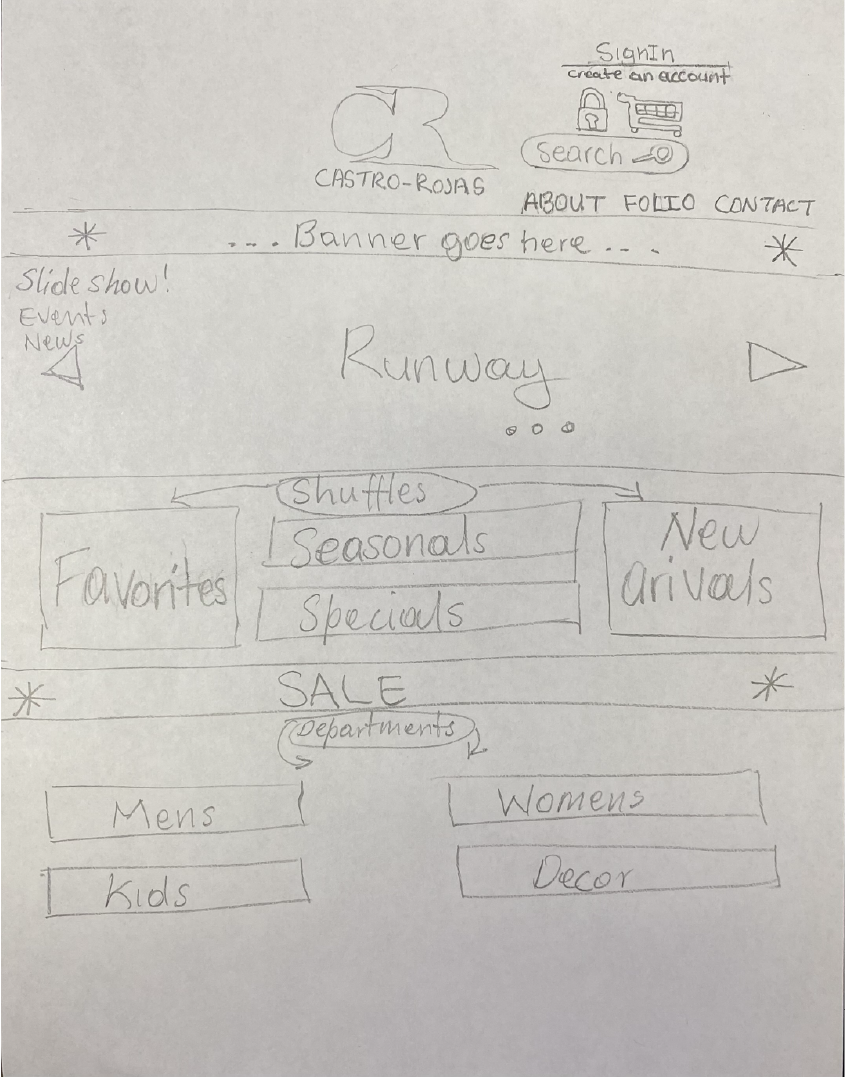 SignIn
create an account
CR
Search
CASTRO-ROJAS
ABOUT FOLIO CONTACT
* ... Banner goes here ... *
Slide show!
Events
News
Runway
Shuffles
Favorites
Seasonals
Specials
New
arivals
* SALE *
Departments
Mens
Womens
Kids
Decor